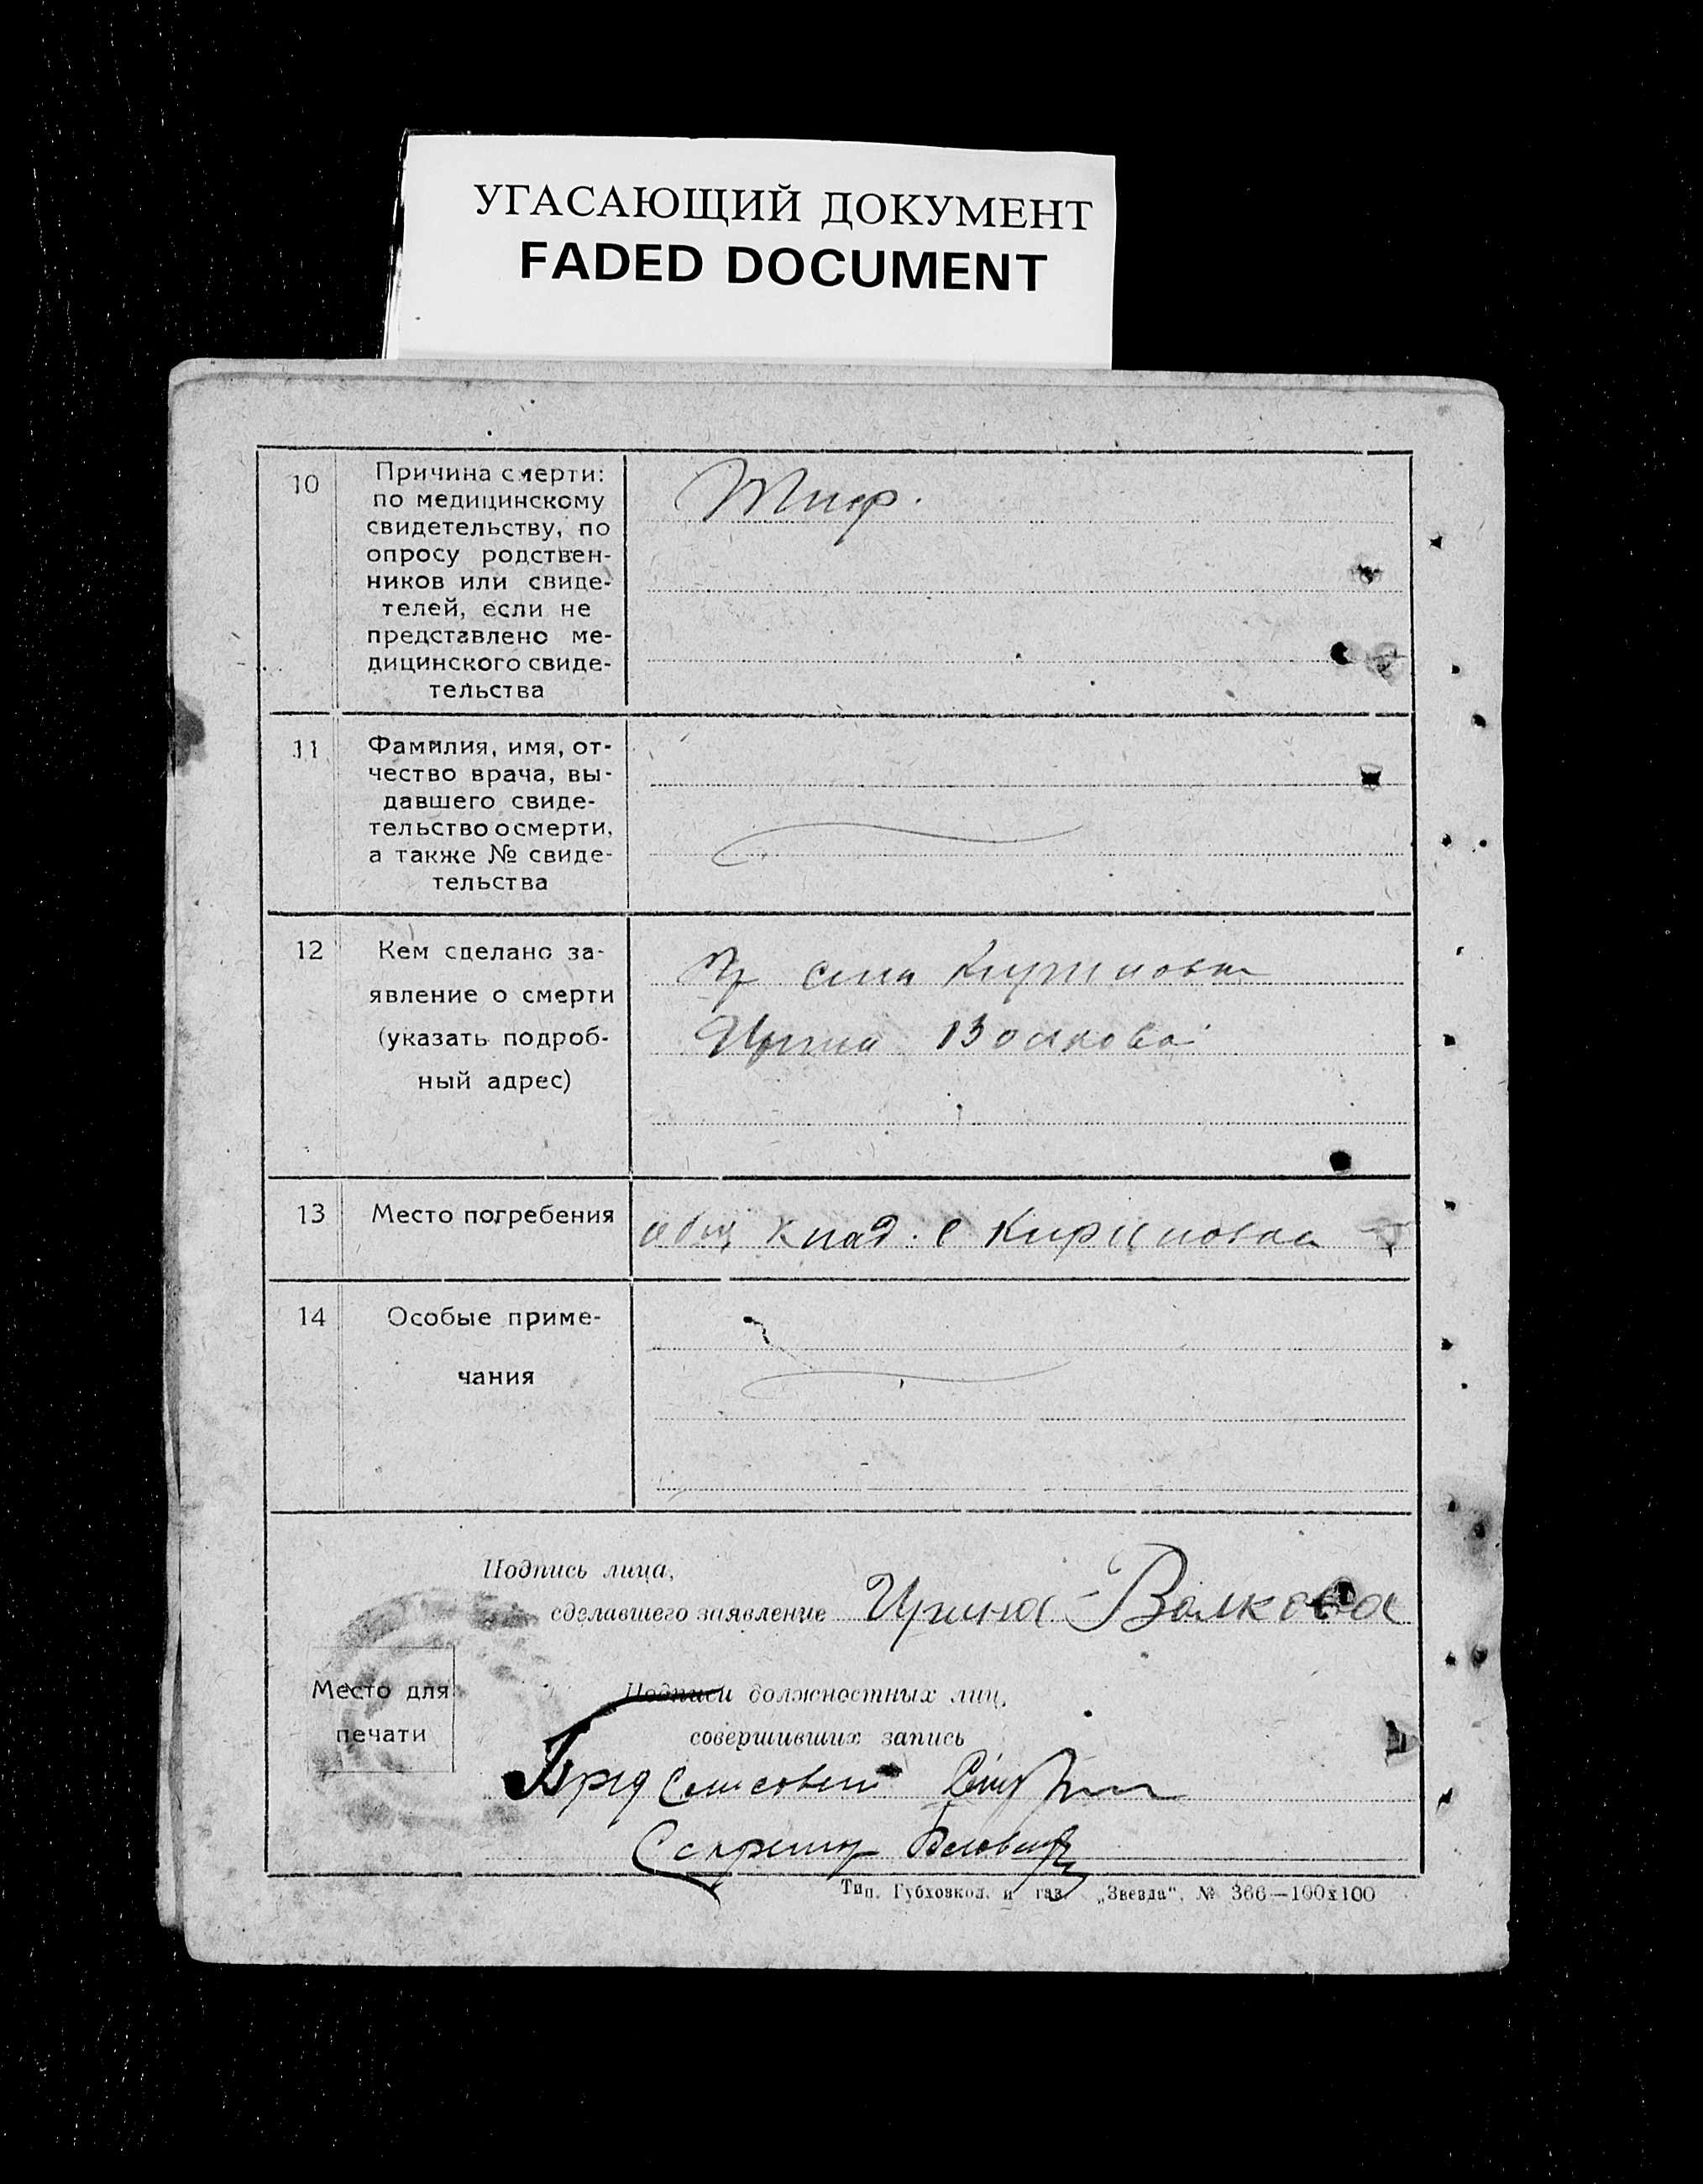 УГАСАЮЩИЙ ДОКУМЕНТ
FADED DOCUMENT
10
Причина смерти:
по медицинскому
свидетельству, по
опросу родствен-
ников или свиде-
телей, если не
представлено ме-
дицинского свиде-
тельства
Тиф.
11
Фамилия, имя, от-
чество врача, вы-
давшего свиде-
тельство о смерти,
а также № свиде-
тельства
12
Кем сделано за-
явление о смерти
(указать подроб-
ный адрес)
Гр села
Ирина Волкова
13
Место погребения
общ клад. с
14
Особые приме-
чания
Подпись лица,
сделавшего заявление Ирина Волкова
Место для
печати
Подписи должностных лиц,
совершивших запись
Пред
Секретар
Тип. Губховкод. и газ. „Звезда“, № 366—100х100